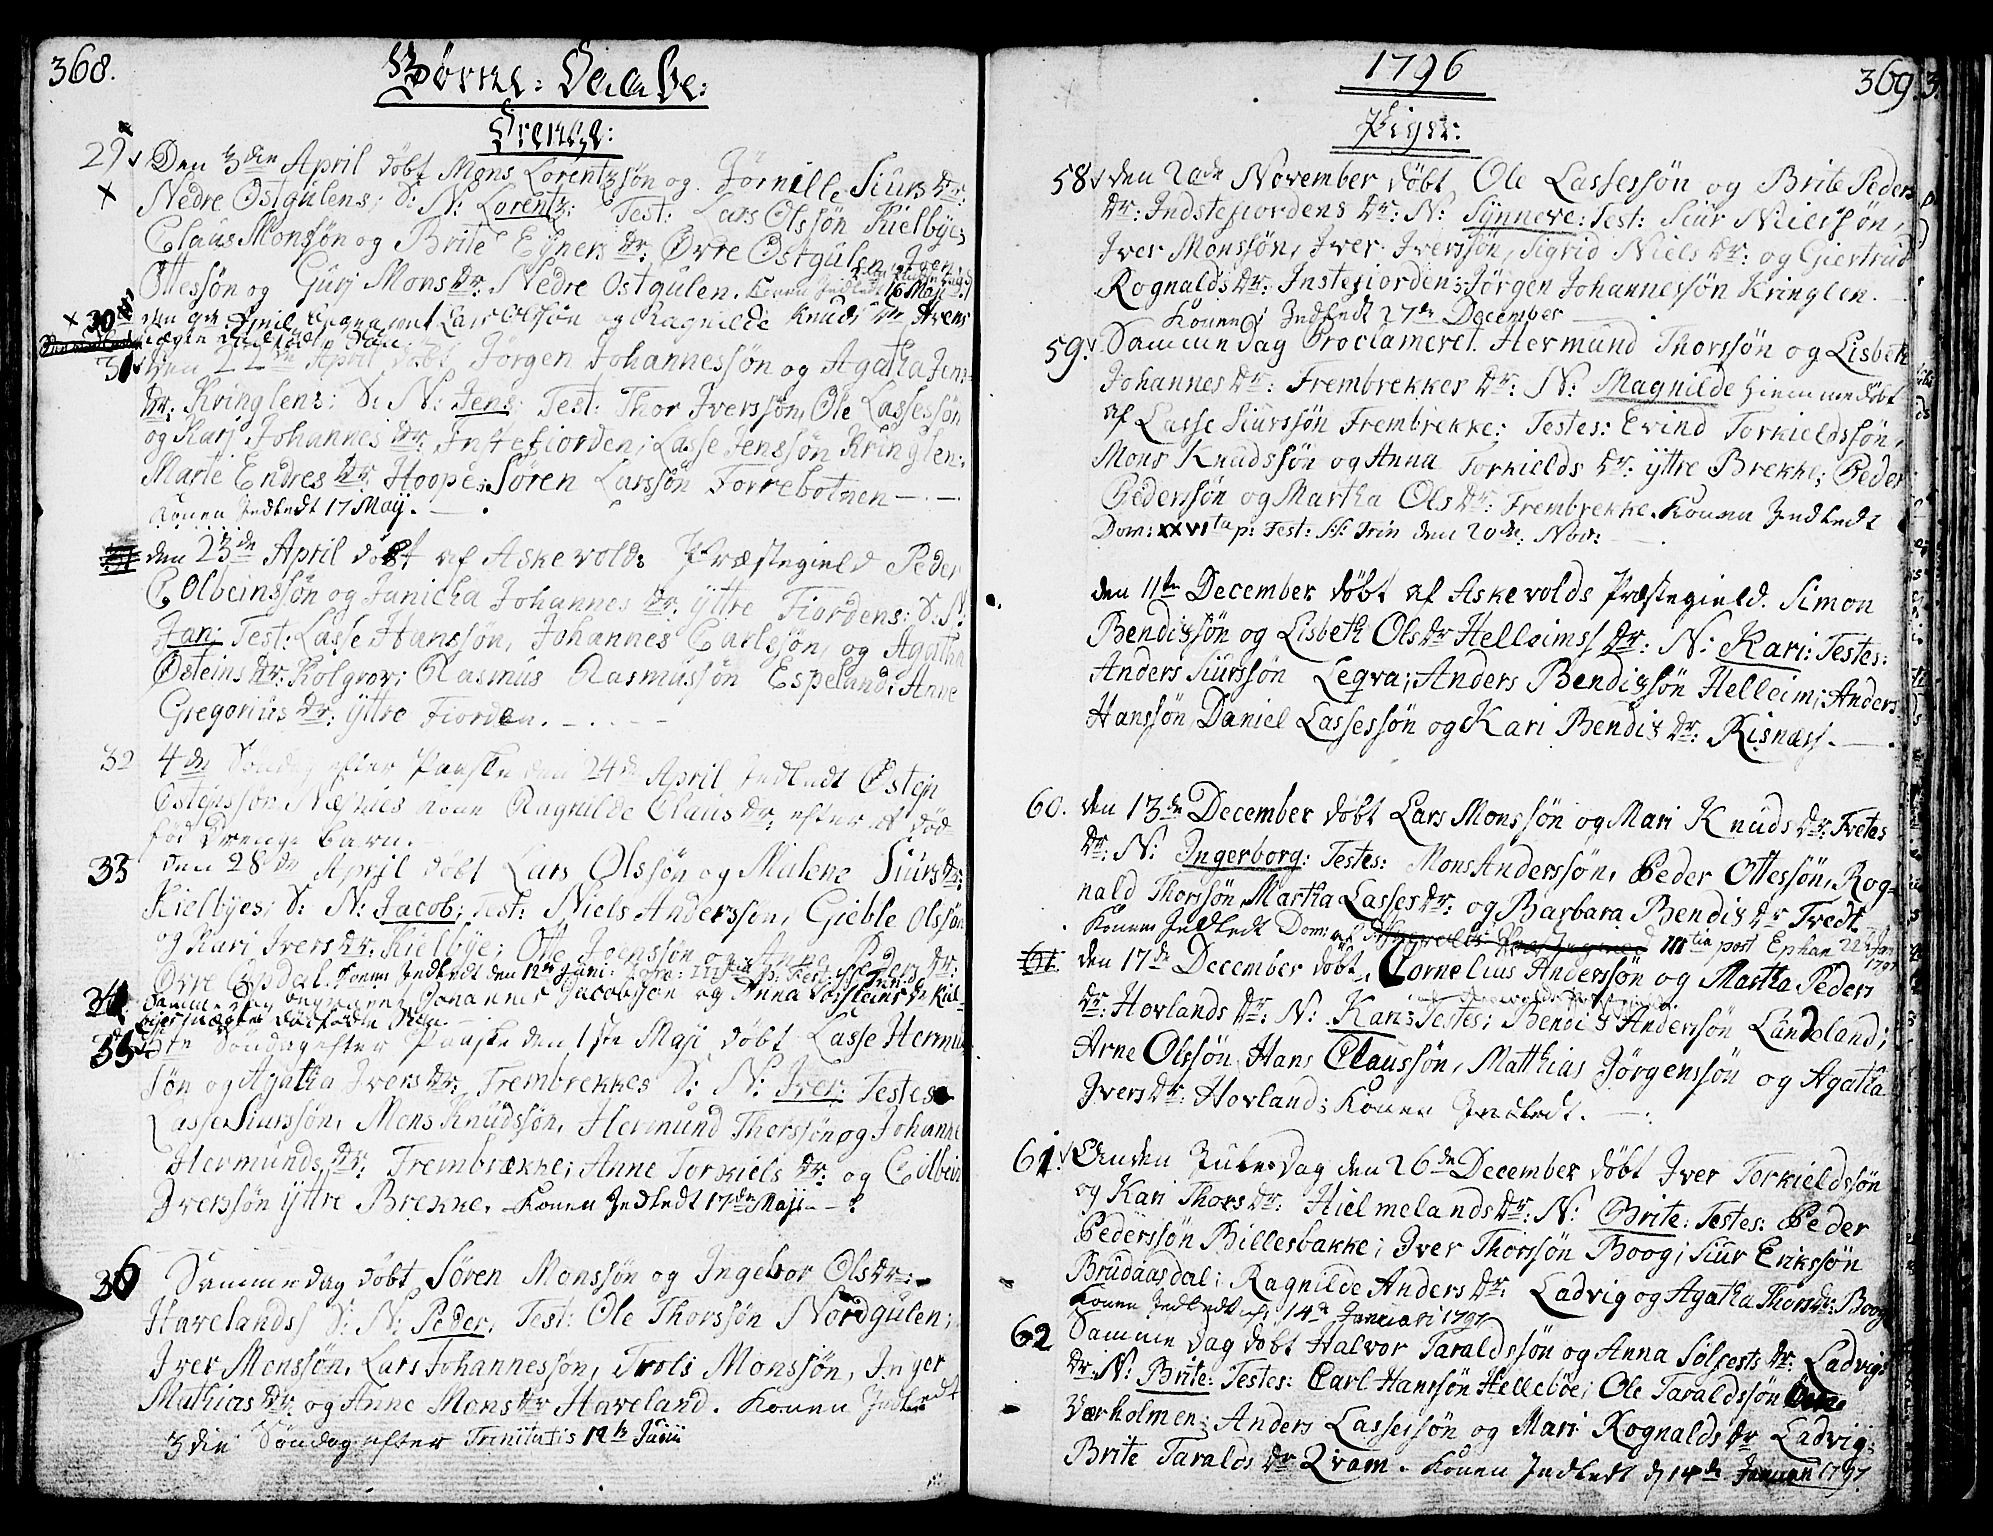 368.
Børne: Daabe:
Drenge:
29 Den 3die April døbt Mons Lorentzsøn og Jørnille Siurs Dr:
Nedre Østgulens; S: N: Lorentz: Test: Lars Olssøn Kielbye;
Claus Monssøn og Brite Eyners Dr: Øvre Østgulen, Iver
Ottessøn og Guri Mons Dr: Nedre Østgulen. Konen Indledt 16 Maji
30 den April begravet Lars Olssøn og Ragnilde Knuds Dr
dødfødte Søn.
31 Den 22de April døbt Jørgen Johannessøn og Agatha Jens
Dr: Kringlens; S: N: Jens: Test: Thor Iverssøn, Ole Lassessøn
og Kari Johannes Dr: Instefiorden; Lasse Jenssøn Kringlen;
Marte Endres Dr: Hoope; Søren Larssøn Torrebotnen —.—
Konen Indledt 17 May.
den 23de April døbt af Askevolds Præstegield Peder
Colbeinssøn og Janicha Johannes Dr: Yttre Fiordens: S: N:
Jan: Test: Lasse Hanssøn, Johannes Carlssøn, og Agatha
Østeins Dr: Kolgrov; Rasmus Rasmussøn Espeland; Anne
Gregorius Dr: Yttre Fiorden.
32 4de Søndag efter Paaske den 24de April Indledt Østen
Østenssøn Næsnes Kone Ragnilde Claus Dr: efter et død-
fød Drenge Barn.
33 den 28de April døbt Lars Olssøn og Malene Siurs Dr:
Kielbyes; S: N: Jacob; Test: Niels Anderssøn, Gieble Olssøn
og Kari Ivers Dr: Kielbye; Otte Joenssøn og Anne Peders Dr:
Øvre Opdal. Konen Indledt den 12te Juni: p: Fest: SS: Trin:
34 Samme dag begravet Johannes Jacobsøn og Anna Torsteins Dr Kiel-
byes dødfødte Søn.
35 5te Søndag efter Paaske den 1ste Maji døbt Lasse Hermun
søn og Agatha Ivers Dr: Frembrekkes S: N: Iver: Testes
Lasse Siurssøn, Mons Knudssøn, Hermund Thorssøn og Johanne
Hermunds Dr: Frembrække; Anne Torkiels Dr: og Colbein
Iverssøn Yttre Brekke. Konen Indledt 17de Maji
36 Samme dag døbt Søren Monssøn og Ingebor Ols Dr:
Havelands S: N: Peder; Test: Ole Thorssøn Nordgulen;
Iver Monssøn, Lars Johannessøn, Troels Monssøn, Inger
Mathias Dr: og Anne Mons Dr Haveland. Konen Indledt
3die Søndag efter Trinitatis 12te Junii
1796
369.
Piger:
58 den 20de November døbt Ole Lassessøn og Brite Peders
Dr: Indstefiordens Dr: N: Synneve: Test: Siur Nielssøn,
Iver Monssøn, Iver Iverssøn, Sigrid Niels Dr: og Giertrud
Rognalds Dr: Instefiorden; Jørgen Johannessøn Kringlen.
Konen Indledt 27de December
59 Samme Dag Proclameret Hermund Thorssøn og Lisbeth
Johannes Dr: Frembrekkes Dr: N: Magnilde Hiemmedøbt
af Lasse Siurssøn Frembrekke: Testes: Evind Torkieldssøn,
Mons Knudssøn og Anna Torkields Dr: Yttre Brekke; Peder
Pederssøn og Martha Ols Dr: Frembrekke. Konen Indledt
Dom: XXVIta p: Fest: SS: Trin den 20de Nov:
den 11te December døbt af Askevolds Præstegield. Simon
Bendixsøn og Lisbeth Ols Dr Helleims Dr: N: Kari: Testes:
Anders Siurssøn Leqva; Anders Bendixsøn Helleim; Anders
Hanssøn, Daniel Lassessøn og Kari Bendix Dr: Risnæs.
60. den 13de December døbt Lars Monssøn og Mari Knuds Dr: Tvetes
Dr: N: Ingerborg: Testes: Mons Anderssøn, Peder Ottessøn, Rog-
nald Thorssøn, Martha Lasses Dr: og Barbara Bendix Dr Tvedt
Konen Indledt Dom: IIItia post Ephan 22de Jan 1797
61 den 17de December døbt Cornelius Anderssøn og Martha Peders
Dr: Hovlands Dr: N: Kari: Testes; Bendix Anderssøn Lundeland;
Arne Olssøn, Hans Claussøn, Matthias Jørgenssøn og Agatha
Ivers Dr: Hovland; Konen Indledt.
61. Anden Jule Dag den 26de December døbt Iver Torkieldssøn
og Kari Thors Dr: Hielmelands Dr: N: Brite: Testes: Peder
Pederssøn Billesbakke; Iver Thorssøn Boog; Siur Erikssøn
Brudaasdal; Ragnilde Anders Dr: Ladvig og Agatha Thors Dr: Boog
Konen Indledt 14de Januari 1797
62 Samme Dag døbt Halvor Taraldssøn og Anna Solfests Dr: Ladvigs
Dr: N: Brite: Testes: Carl Hanssøn Hellebøe; Ole Taraldssøn
Værholmen; Anders Lassessøn og Mari Rognalds Dr Ladvig;
Brite Taralds Dr Qvam. Konen Indledt d 14de Januari 1797.